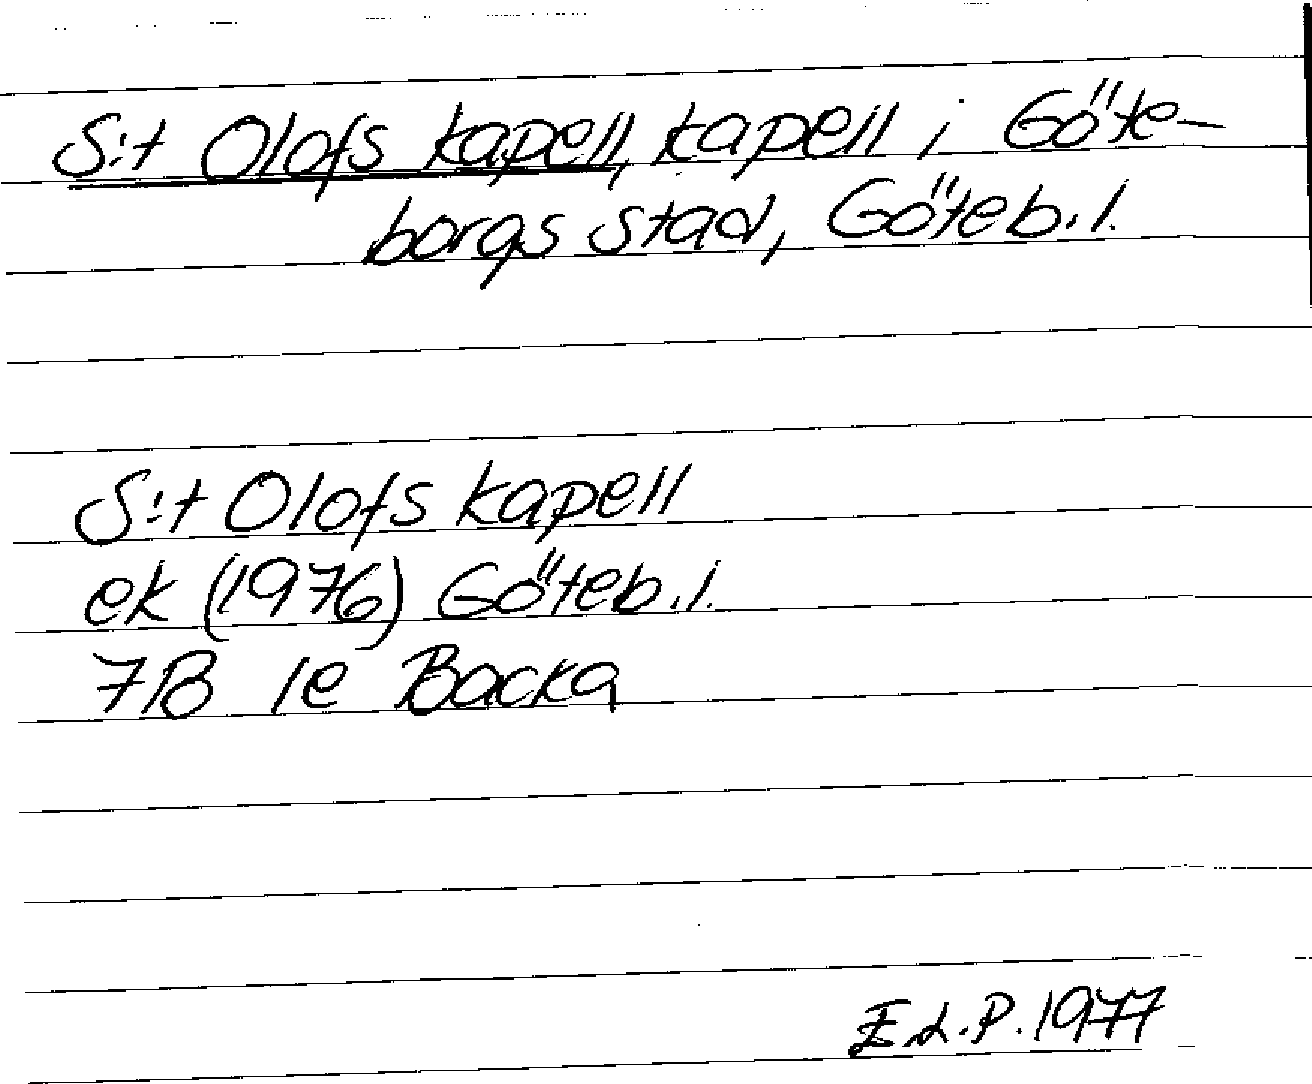 S:t Olofs kapell, kapell i Göte-
borgs stad, Göteb. l.
S:t Olofs kapell
ek (1976) Göteb. l.
7B 1e Backa
E.L.P. 1977